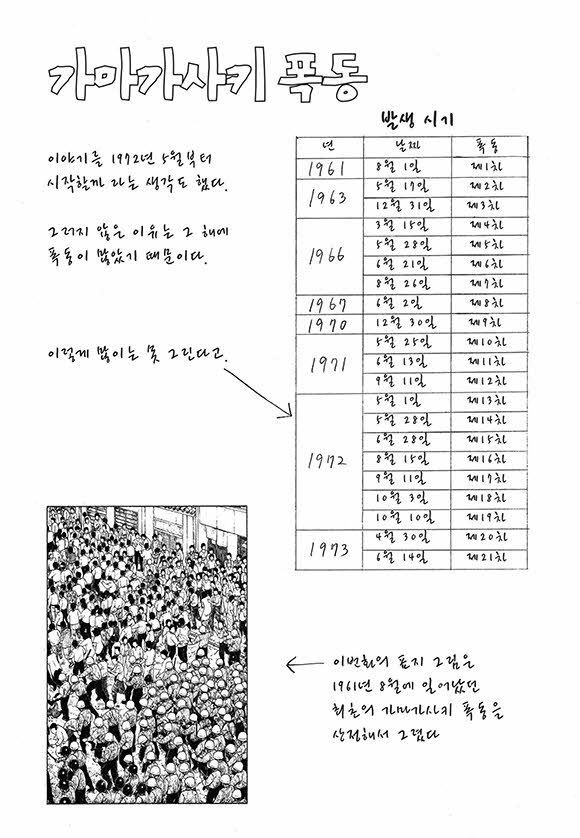 가마가사키 폭동
이야기를 1972년 5월부터
시작할까 라는 생각도 했다.
그러지 않은 이유는 그 해에
폭동이 많았기 때문이다.
이렇게 많이는 못 그린다고.
발생 시기
년 날짜 폭동
1961 8월 1일 제1차
1963 5월 17일 제2차
12월 31일 제3차
1966 3월 15일 제4차
5월 28일 제5차
6월 21일 제6차
8월 26일 제7차
1967 6월 2일 제8차
1970 12월 30일 제9차
1971 5월 25일 제10차
6월 13일 제11차
9월 11일 제12차
1972 5월 1일 제13차
5월 28일 제14차
6월 28일 제15차
8월 15일 제16차
9월 11일 제17차
10월 3일 제18차
10월 10일 제19차
1973 4월 30일 제20차
6월 14일 제21차
이번화의 표지 그림은
1961년 8월에 일어났던
최초의 가마가사키 폭동을
상정해서 그렸다